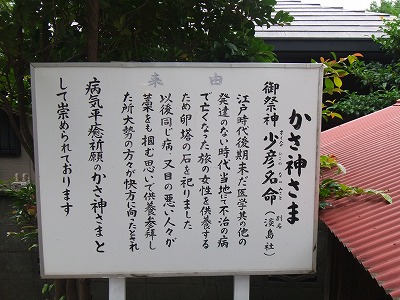 由来
かさ神さま
御祭神 少彦名命 別名(淡島社)
すくなひこなのみこと
江戸時代後期未だ医学其の他の
発達のない時代当地にて不治の病
で亡くなった旅の女性を供養する
ため卵塔の石を祀りました
以後同じ病 又目の悪い人々が
藁をも掴む思いで供養参拝し
た所大勢の方々が快方に向ったとされ
病気平癒祈願のかさ神さまと
して崇められております